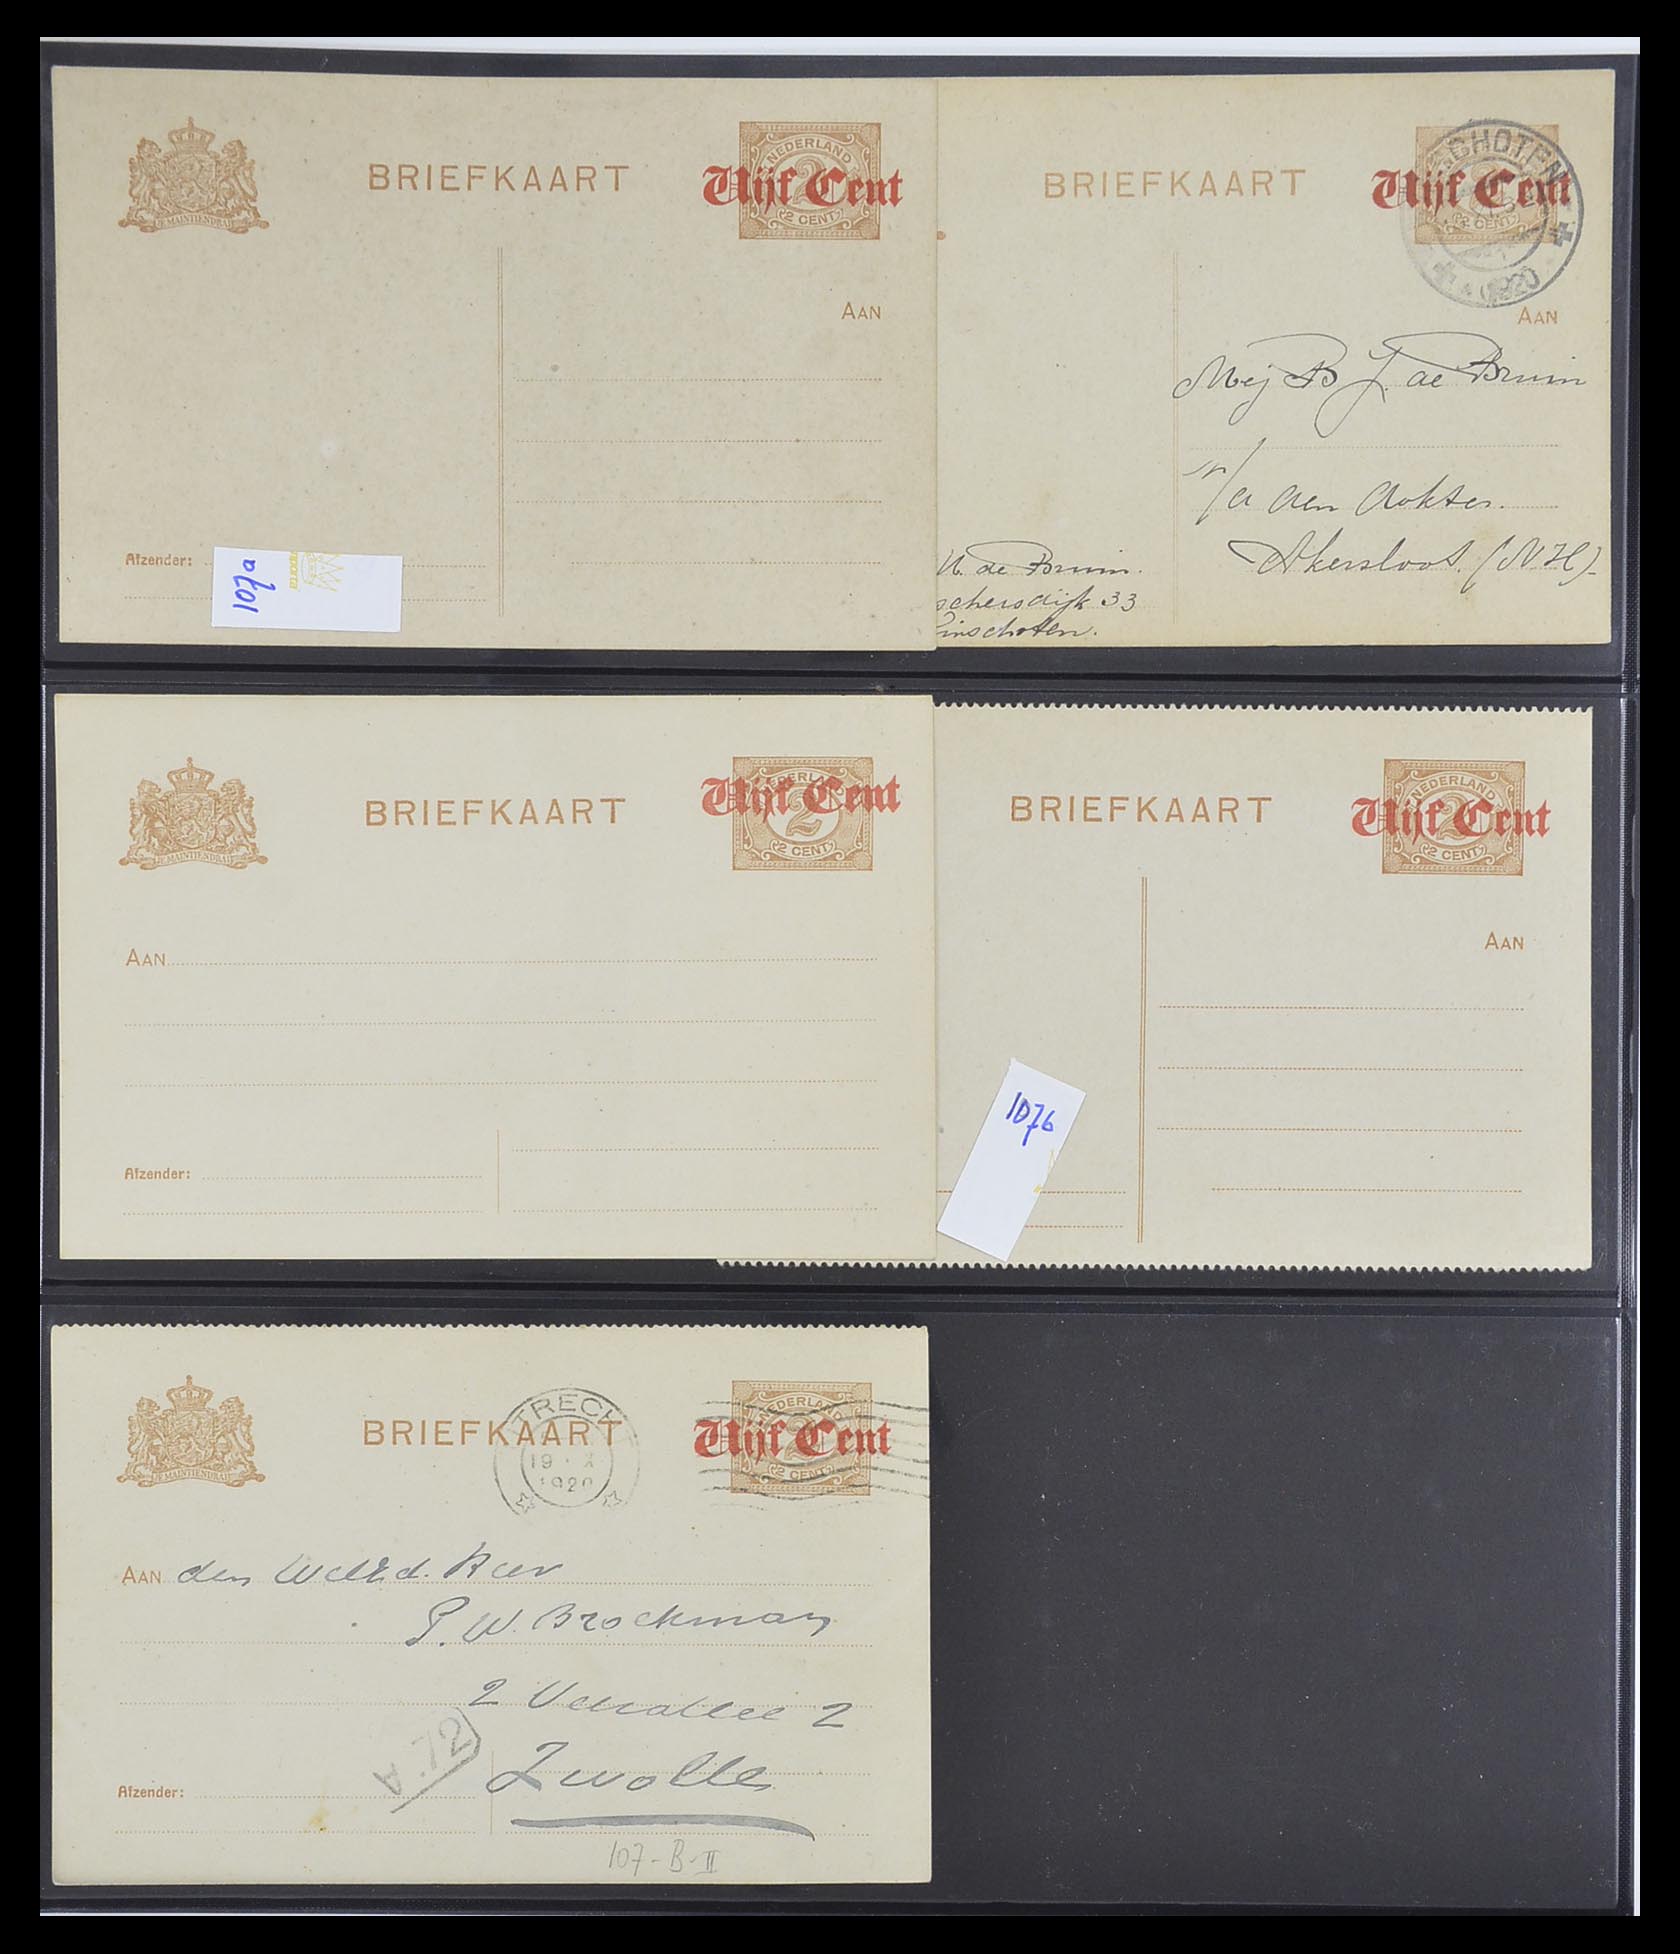 BRIEFKAART
NEDERLAND
2
2 CENT
Vijf Cent
JE MAINTIENDRAI
AAN
Afzender:
107a
BRIEFKAART
Vijf Cent
2 CENT
1920
AAN
Mej B J. de Bruin
p/a den dokter.
Akersloot. (N H)
de Bruin.
33
BRIEFKAART
NEDERLAND
2
2 CENT
Vijf Cent
JE MAINTIENDRAI
AAN
Afzender:
BRIEFKAART
NEDERLAND
2
2 CENT
Vijf Cent
AAN
107b
BRIEFKAART
UTRECHT
19 X
1920
NEDERLAND
2
2 CENT
Vijf Cent
JE MAINTIENDRAI
AAN den WelEd. Heer
P. W. Brockman
2 2
A 72
Zwolle
Afzender:
107-B-II